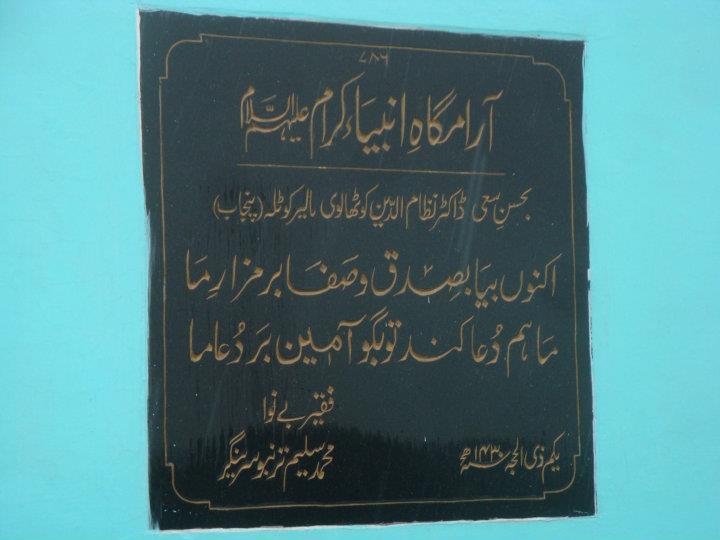 ۷۸۶
آرامگاہِ انبیاءِ کرام علیہم السلام
بحسنِ سعی ڈاکٹر نظام الدین کوٹھالوی مالیر کوٹلہ (پنجاب)
اکنوں بیا بصِدق و صَفا بر مزارِ مَا
مَا ہم دُعا کند تو بگو آمین بَر دُعا ما
فقیر بے نوا
محمد سلیم ترنبو سرینگر
یکم ذی الحجہ ۱۴۳۰ھ